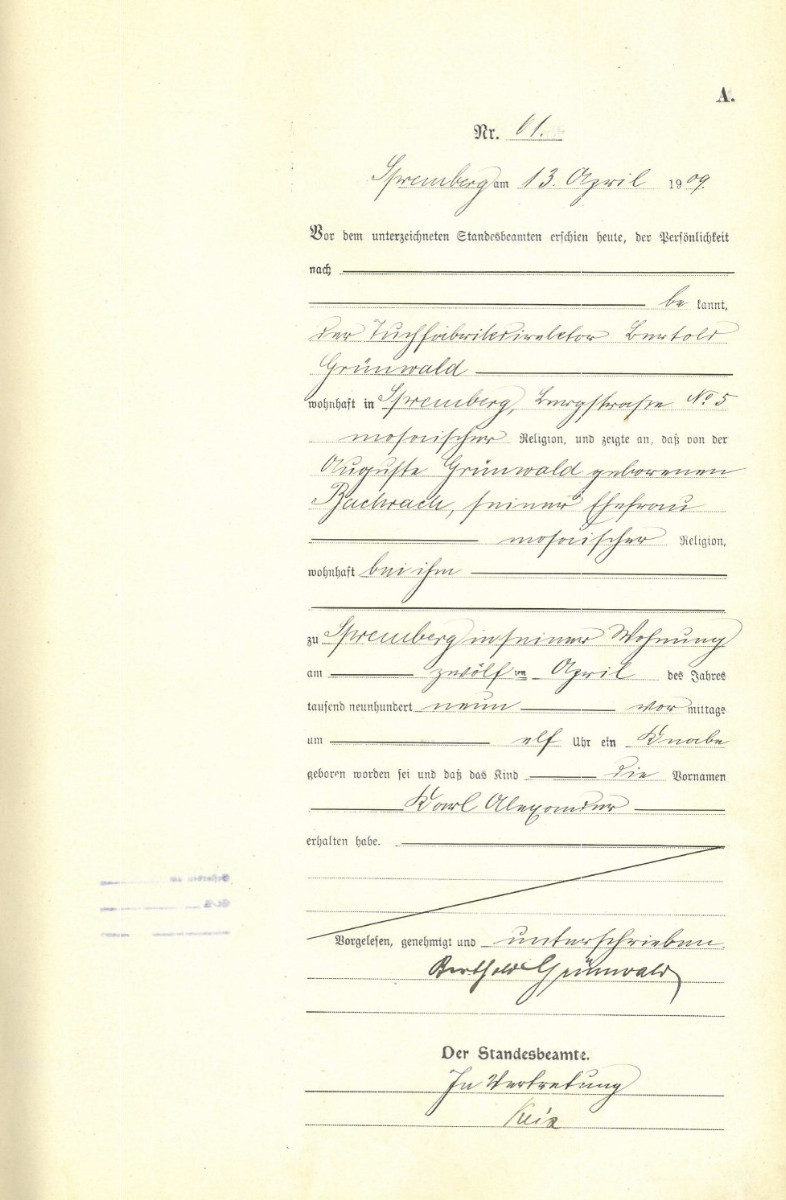 A.
Nr. 61.
Spremberg am 13. April 1909.
Vor dem unterzeichneten Standesbeamten erschien heute, der Persönlichkeit
nach
be kannt,
der Tuchfabrikdirektor Bertold
Grünwald
wohnhaft in Spremberg, Burgstraße No 5
mosaischer Religion, und zeigte an, daß von der
Auguste Grünwald geborenen
Bachrach, seiner Ehefrau
mosaischer Religion,
wohnhaft bei ihm
zu Spremberg in seiner Wohnung
am zwölften April des Jahres
tausend neunhundert neun vor mittags
um elf Uhr ein Knabe
geboren worden sei und daß das Kind die Vornamen
Karl Alexander
erhalten habe.
Vorgelesen, genehmigt und unterschrieben.
Berthold Grünwald
Der Standesbeamte.
In Vertretung